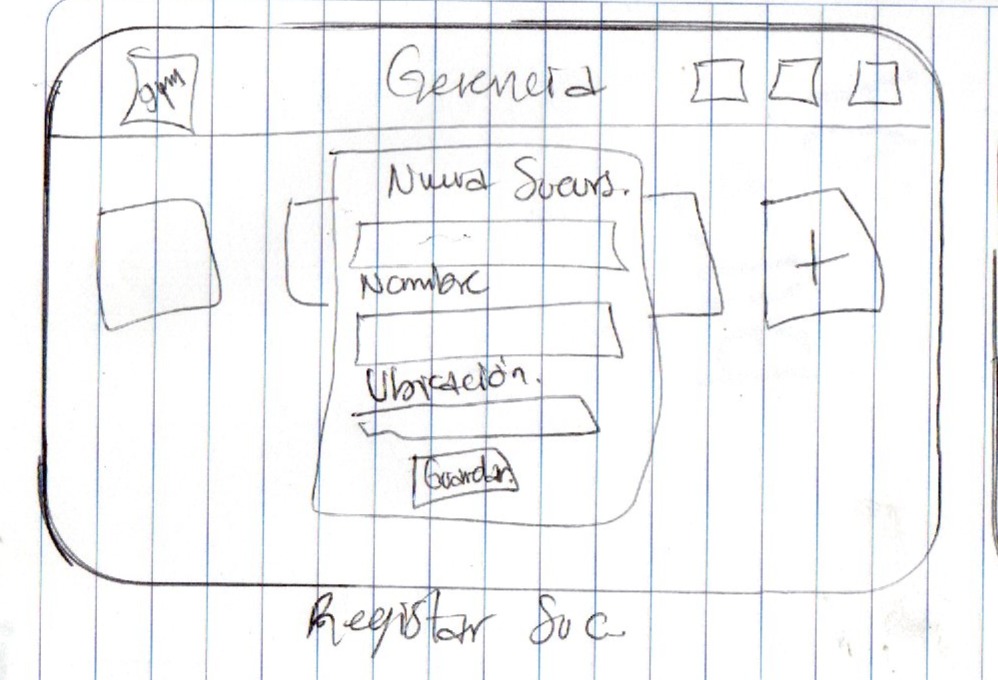 gym
Gerencia
Nueva Sucurs.
+
Nombre
Ubicación.
Guardar
Registar Suc.